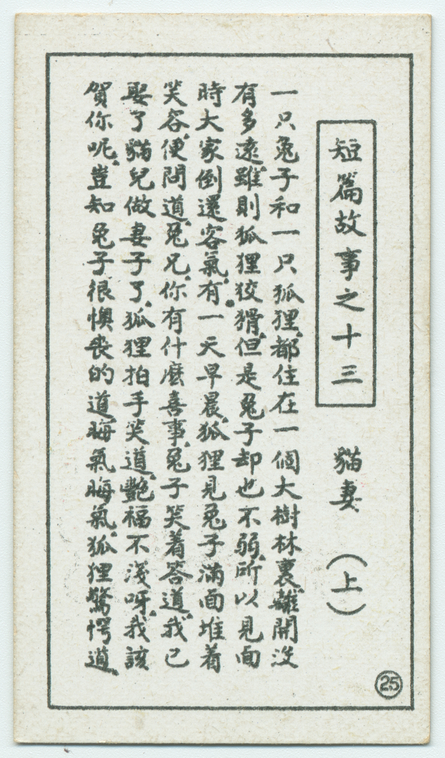 短篇故事之十三
貓妻（上）
一只兔子和一只狐狸都住在一個大樹林裏離開沒
有多遠雖則狐狸狡猾但是兔子却也不弱所以見面
時大家倒還客氣有一天早晨狐狸見兔子滿面堆着
笑容便問道兔兄你有什麽喜事兔子笑着答道我已
娶了貓兒做妻子了狐狸拍手笑道艷福不淺呀我該
賀你呢豈知兔子很懊喪的道晦氣晦氣狐狸驚愕道
25